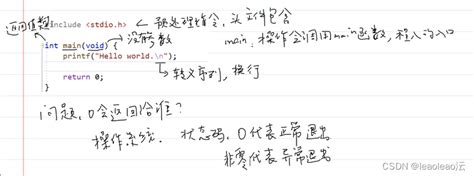 #include <stdio.h> ← 预处理指令,头文件包含
返回值类型
int main(void) { 没有参数
main:操作系统调用main函数,程序的入口
printf("Hello world.\n"); → 转义序列,换行
return 0;
}
问题,0会返回给谁?
操作系统. 状态码,0代表正常退出
非零代表异常退出
CSDN @leaoleao沄